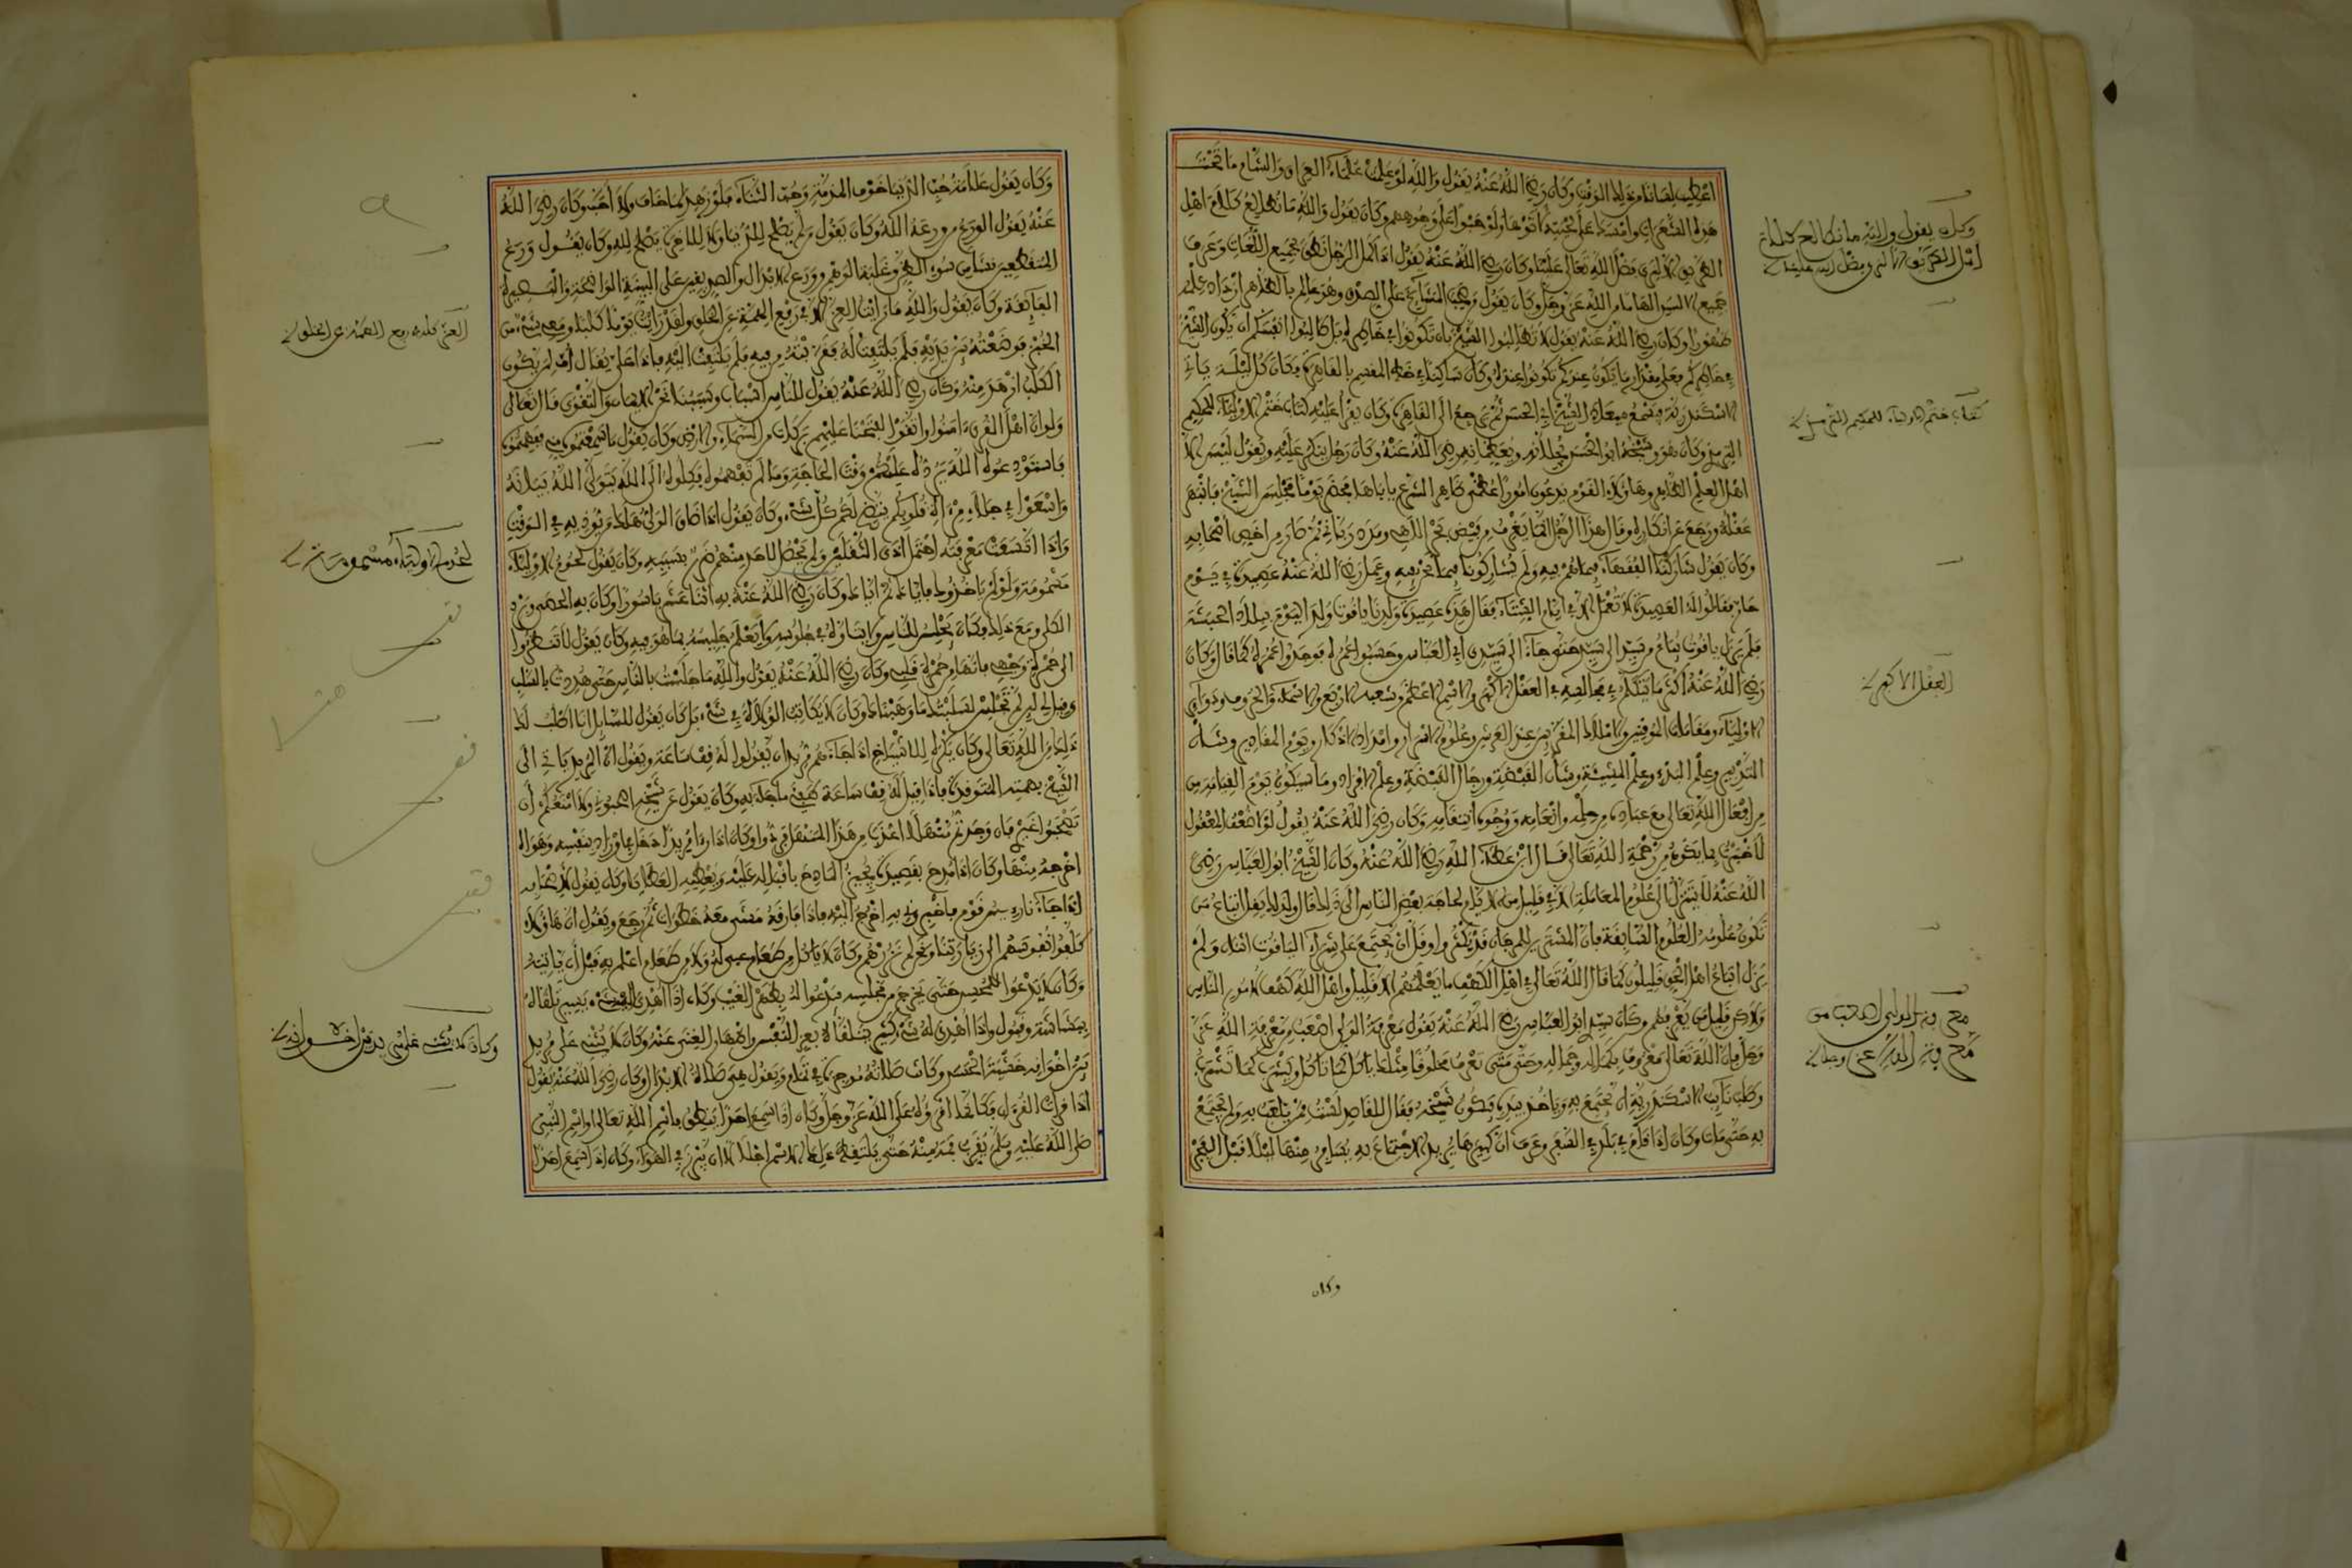 اعطيت لسانا من ذلك الوقت وكان رضي الله عنه يقول والله لو علمت علماء العراق والشام ما تحت
هذه الشعرات وامسك على لحيته لاتوها ولو حبوا على وجوههم وكان يقول والله ما نطالع كلام اهل
الطريق الا لنرى فضل الله تعالى علينا وكان رضي الله عنه يقول اذا كمل الرجل نطق بجميع اللغات وعرف
جميع الالسن الهاما من الله عز وجل وكان يقول
وكان رضي الله عنه يقول لا تطالبوا الشيخ بان تكونوا في خاطره بل طالبوا انفسكم ان يكون الشيخ
في خاطركم فعلى مقدار ما يكون عندكم تكونوا عنده وكان ساكنا في خط المقسم بالقاهرة فكان كل ليلة ياتي
الاسكندرية فيسمع ميعاد الشيخ ابي الحسن ثم يرجع الى القاهرة وكان يقرا عليه كتاب ختم الاولياء للحكيم
الترمذي وكان هو وشيخه ابو الحسن يجلانه ويعظمانه رضي الله عنه وكان رجل ينكر عليه ويقول ليس الا
اهل العلم الظاهر وهاؤلاء القوم يدعون امورا عظمى ظاهر الشرع ياباها فحضر يوما مجلس الشيخ فانبهر
عقله ورجع عن انكاره وقال هذا الرجل انما يغرف من فيض بحر الاهي ومدد رباني ثم صار من اخص اصحابه
وكان يقول شاركنا الفقهاء فيما هم فيه ولم يشاركونا فيما نحن فيه وعمل رضي الله عنه عصيدة في يوم
حار فقالوا له العصيدة لا تعمل الا في ايام الشتاء فقال هذه عصيدة ولدنا ياقوت ولد اليوم ببلاد الحبشة
فلم يزل ياقوت يباع من سيد الى سيد حتى جاء الى سيدي ابي العباس وحسبوا عمره فوجدوا عمره كما قال وكان
رضي الله عنه اكثر ما يتكلم في مجالسه في العقل الاكبر والاسم الاعظم وشعبه الاربع والاسماء والحروف ودوائر
الاولياء ومقامات الموقنين والاملاك المقربين عند العرش وعلوم الاسرار وامداد الاذكار ويوم المقادير وشان
التدبير وعلم البدء وعلم المشيئة وشان القبضة ورجال القبضة وعلم الافراد وما سيكون يوم القيامة من
من افعال الله تعالى مع عباده من حلمه وانعامه ووجود انتقامه وكان رضي الله عنه يقول لولا ضعف العقول
لاخبرت بما يكون من رحمة الله تعالى قال ابن عطاء الله رضي الله عنه وكان الشيخ ابو العباس رضي
الله عنه لا يتنزل الى علوم المعاملة الا في قليل من الايام لحاجة بعض الناس الى ذلك قال ولذلك يقل اتباع من
تكون علومه العلوم السابقة فان المشترين للمرجان قد يكثروا وقل ان يجتمع على شراء الياقوت اثنان ولم
يزل اتباع اهل الحق قليلون كما قال الله تعالى في اهل الكهف ما يعلمهم الا قليل واهل الله كهف لامور الناس
ولاكن قليل من يعرفهم وكان سيدي ابو العباس رضي الله عنه يقول معرفة الولي اصعب من معرفة الله عز
وجل فان الله تعالى معروف بكماله وجماله وحتى متى تعرف مخلوقا مثلك ياكل كما تاكل ويشرب كما تشرب
وطلب نائب الاسكندرية ان يجتمع به وياخذ بيده فيكون شيخه فقال للقاصد لست ممن يلعب به ولم يجتمع
به حتى مات وكان اذا نام في بلد في السفر وعرف ان كبيرها يريد الاجتماع به يسافر منها ليلا قبل الفجر
وكان
وكان يقول والله ما نطالع كلام
اهل الطريق الا لنرى فضل الله علينا
كتاب ختم الاولياء للحكيم الترمذي
العقل الاكبر
معرفة الولي اصعب من
معرفة الله عز وجل
وكان يقول علامة حب الدنيا خوف المذمة وحب الثناء فلو زهد لما خاف ولا احب وكان رضي الله
عنه يقول الورع من ورعه الله وكان يقول من لم يصلح للدنيا ولا للاخرة يصلح لله وكان يقول ورع
المنقطعين نشا من سوء الظن وغلبة الوهم وورع الابدال والصديقين على البينة الواضحة والبصيرة
الفائقة وكان يقول والله ما رايت العز الا في رفع الهمة عن الخلق ولقد رايت يوما كلبا ومعي شيء من
الخبز فوضعته بين يديه فلم يلتفت له فقربته من فيه فلم يلتفت اليه فاذا علي يقال اف لمن يكون
الكلب ازهد منه وكان رضي الله عنه يقول للناس اسباب وسببنا نحن الايمان والتقوى قال تعالى
ولو ان اهل القرى ءامنوا واتقوا لفتحنا عليهم بركات من السماء والارض وكان يقول ما سمعتموه مني ففهمتموه
فاستودعوه الله يرده عليكم وقت الحاجة وما لم تفهموه فكلوه الى الله يتولى الله بيانه
واسعوا في جلاء مرءاة قلوبكم يتضح لكم كل شيء وكان يقول اذا ضاق الولي هلك من يؤذيه في الوقت
واذا اتسعت معرفته احتمل اذى الثقلين ولم يحصل لاحد منهم ضرر بسببه وكان يقول لحوم الاولياء
مسمومة ولو لم ياخذوك فاياك ثم اياك وكان رضي الله عنه به اثنا عشر باسورا وكان به الحصى وبرد
الكلى ومع ذلك فكان يجلس للناس ولا يتاوه في جلوسه ولا يعلم جليسه بما هو فيه وكان يقول لا تنظروا
الى حمرة وجهي فانها من حمرة قلبي وكان رضي الله عنه يقول والله ما جلست بالناس حتى هددت بالسلب
وقيل لي لئن لم تجلس لسلبتك ما وهبناك وكان لا يكاتب الولاة في شيء بل كان يقول للسائل انا اطلب لك
ذلك من الله تعالى وكان يكره للاشياخ اذا جاءهم مريد ان يقولوا له قف ساعة ويقول ان المريد ياتي الى
الشيخ بهمته المتوقدة فاذا قيل له قف ساعة طفئ ما جاء به وكان يقول عن شيخه اصحبوني ولا امنعكم ان
تصحبوا غيري فان وجدتم منهلا اعذب من هذا المنهل فردوا وكان اذا راى مريدا دخل في اوراد بنفسه وهواه
اخرجه منها وكان اذا مدح بقصيدة يجيز المادح باقباله عليه ويعطيه العطايا وكان يقول لاصحابه
اذا جاء ناريس قوم فاخبروني به اخرج اليه فاذا فارقه مشى معه خطوات ثم رجع ويقول ان هاؤلاء
كلفوا نفوسهم الى زيارتنا ونحن لم نزرهم وكان لا ياكل من طعام عبي له ولا من طعام اعلم به قبل ان ياتيه
وكان لا يدعو للمحسن حتى يخرج من مجلسه فيدعو له بظهر الغيب وكان اذا اهدي اليه شيء يسير تلقاه
ببشاشة وقبول واذا اهدي له شيء كثير يتلقاه بعز النفس واظهار الغنى عنه وكان لا يثني على مريد
بين اخوانه خشية الحسد وكانت صلاته موجزة في تمام ويقول هي صلاة الابدال وكان رضي الله عنه يقول
اذا قرات القرءان فكانما اقرؤه على الله عز وجل وكان اذا سمع احدا ينطق باسم الله تعالى او اسم النبي
صلى الله عليه وسلم يقرب فمه منه حتى يلتقط ذلك الاسم اجلالا ان يبرز في الهواء وكان اذا سمع احدا
العز كله في رفع الهمة عن الخلق
لحوم الاولياء مسمومة
وكان لا يثني على مريد بين اخوانه